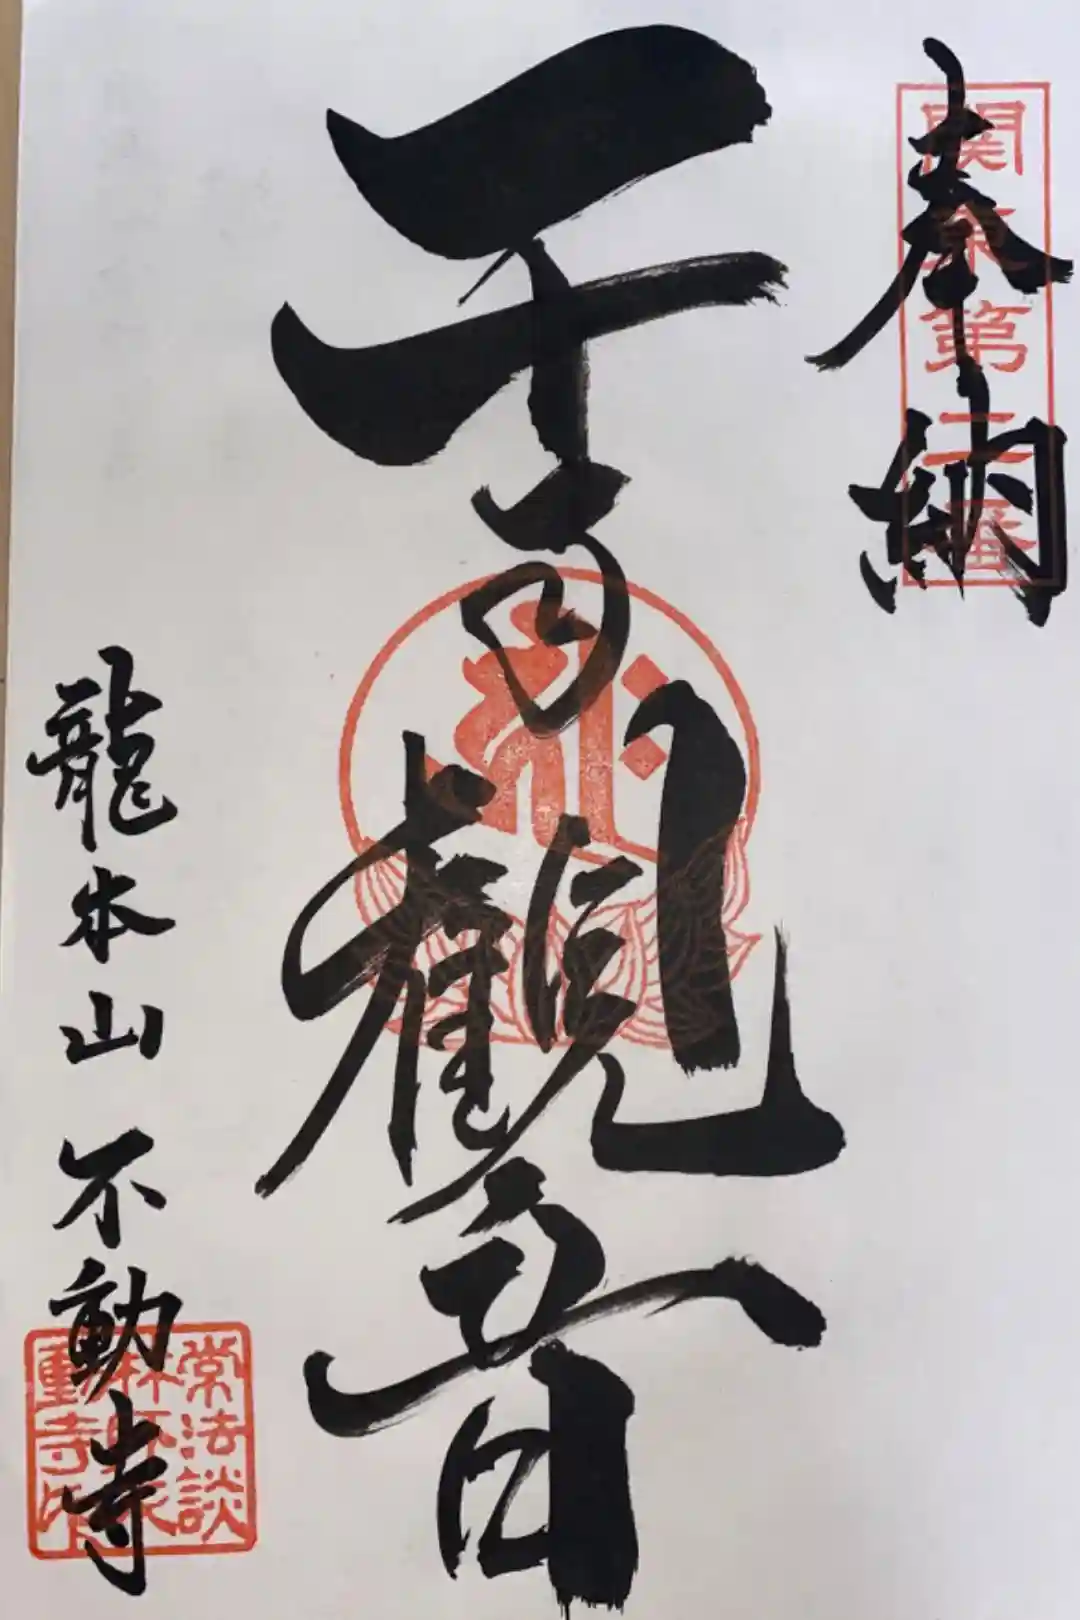 奉納
関東第二番
千手観音
龍本山不動寺